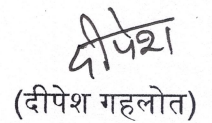 दीपेश
(दीपेश गहलोत)